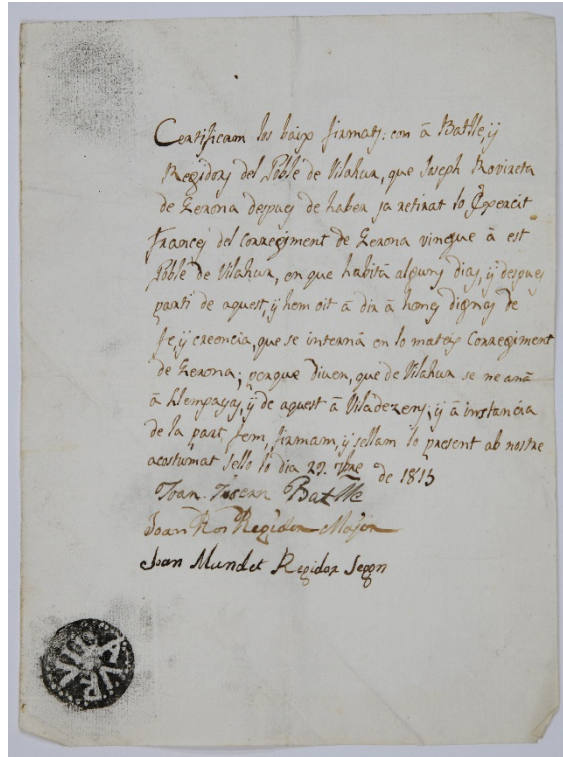 Certificam los baix firmats: com â Batlle, ÿ
Regidors del Poble de Vilahur, que Joseph Rovireta
de Gerona despues de haber ja retirat lo Expercit
francês del corregiment de Gerona vingue â est
Poble de Vilahur, en que habitâ alguns dias, ÿ despues
partí de aquest, ÿ hem oit â dir â homs dignas de
fe, ÿ creencia, que se internâ en lo mateix Corregiment
de Gerona; perque diuen, que de Vilahur se ne anâ
â Llempayas, ÿ de aquest â Viladezens; ÿ â instancia
de la part, fem, firmam, ÿ sellam lo present ab nostre
acostumat sello lo dia 29. 7bre de 1815
Joan Batlle
Joan Ros Regidor Major
Joan Mundet Regidor Segon
VILAVR